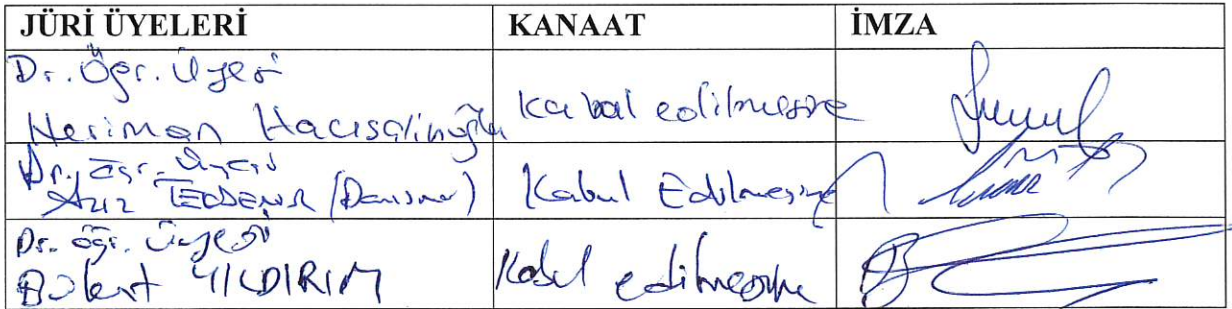 JÜRİ ÜYELERİ KANAAT İMZA
Dr. Öğr. Üyesi
Neriman Hacısalihoğlu Kabul edilmesine
Dr. Öğr. Üyesi
Aziz (Danışman) Kabul Edilmesine
Dr. Öğr. Üyesi
Bülent YILDIRIM Kabul edilmesine